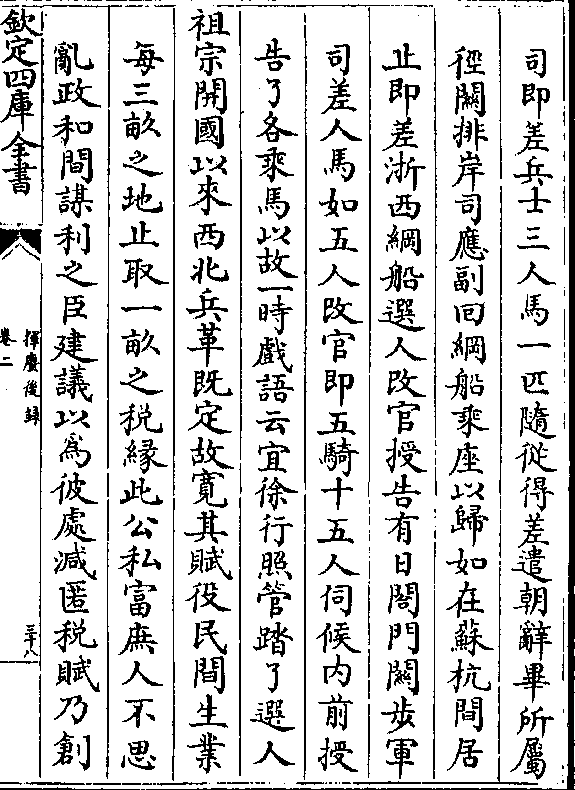 司即差兵士三人馬一匹隨從得差遣朝辭畢所屬
徑關排岸司應副回綱船乘座以歸如在蘇杭間居
止即差浙西綱船選人改官授告有日閤門關步軍
司差人馬如五人改官即五騎十五人伺候内前授
告了各乘馬以故一時戲語云宜徐行照管踏了選人
祖宗開國以來西北兵革既定故寛其賦役民間生業
每三畝之地止取一畝之税緣此公私富庶人不思
亂政和間謀利之臣建議以爲彼處減匿税賦乃創
欽定四庫全書
揮麈後録
卷二
三十八